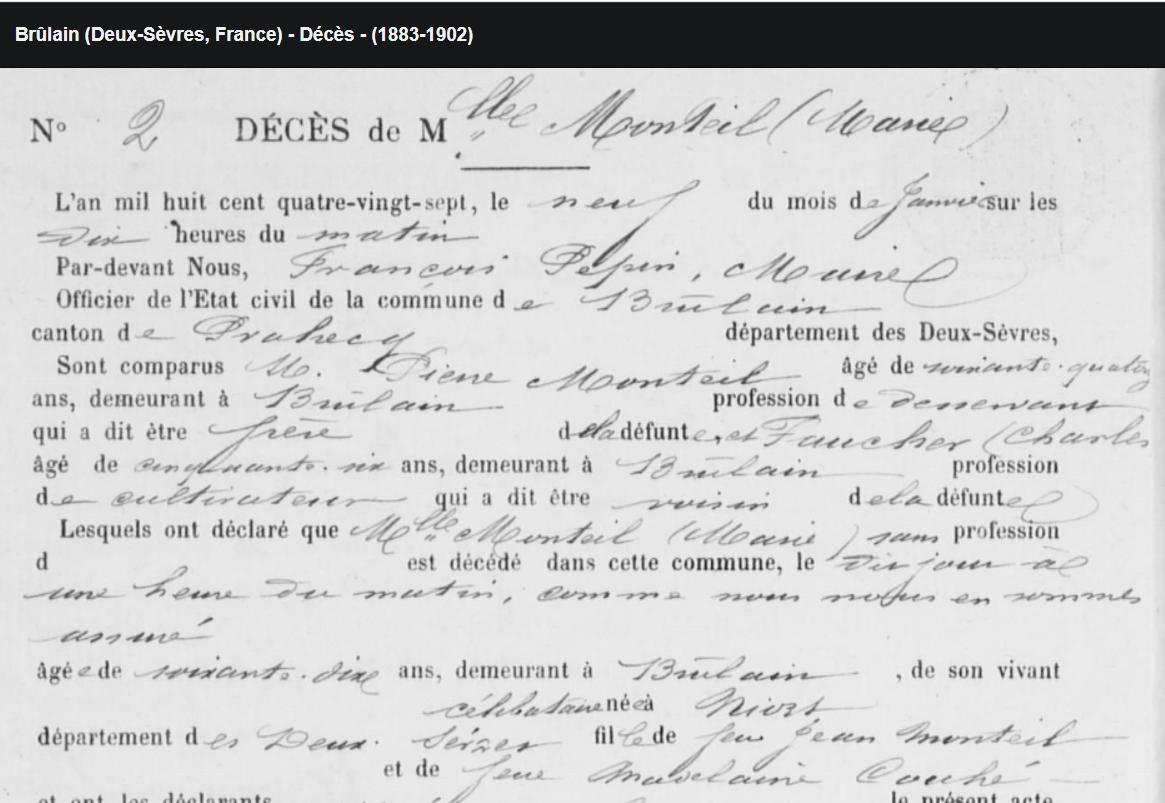 Brûlain (Deux-Sèvres, France) - Décès - (1883-1902)
N° 2 DÉCÈS de Mlle Monteil (Marie)
L'an mil huit cent quatre-vingt-sept, le neuf du mois de Janvier sur les
dix heures du matin
Par-devant Nous, François Pépin, Maire
Officier de l'Etat civil de la commune de Brûlain
canton de Prahecq département des Deux-Sèvres,
Sont comparus M. Pierre Monteil âgé de soixante-quatorze
ans, demeurant à Brûlain profession de desservant
qui a dit être frère de la défunte, et Faucher (Charles
âgé de cinquante-six ans, demeurant à Brûlain profession
de cultivateur qui a dit être voisin de la défunte
Lesquels ont déclaré que Mlle Monteil (Marie) sans profession
d est décédé dans cette commune, le dit jour à
une heure du matin, comme nous nous en sommes
assuré
âgée de soixante-dix ans, demeurant à Brûlain, de son vivant
célibataire née à Niort
département des Deux-Sèvres fille de feu Jean Monteil
et de feue Madelaine Couhé
et ont les déclarants le présent acte